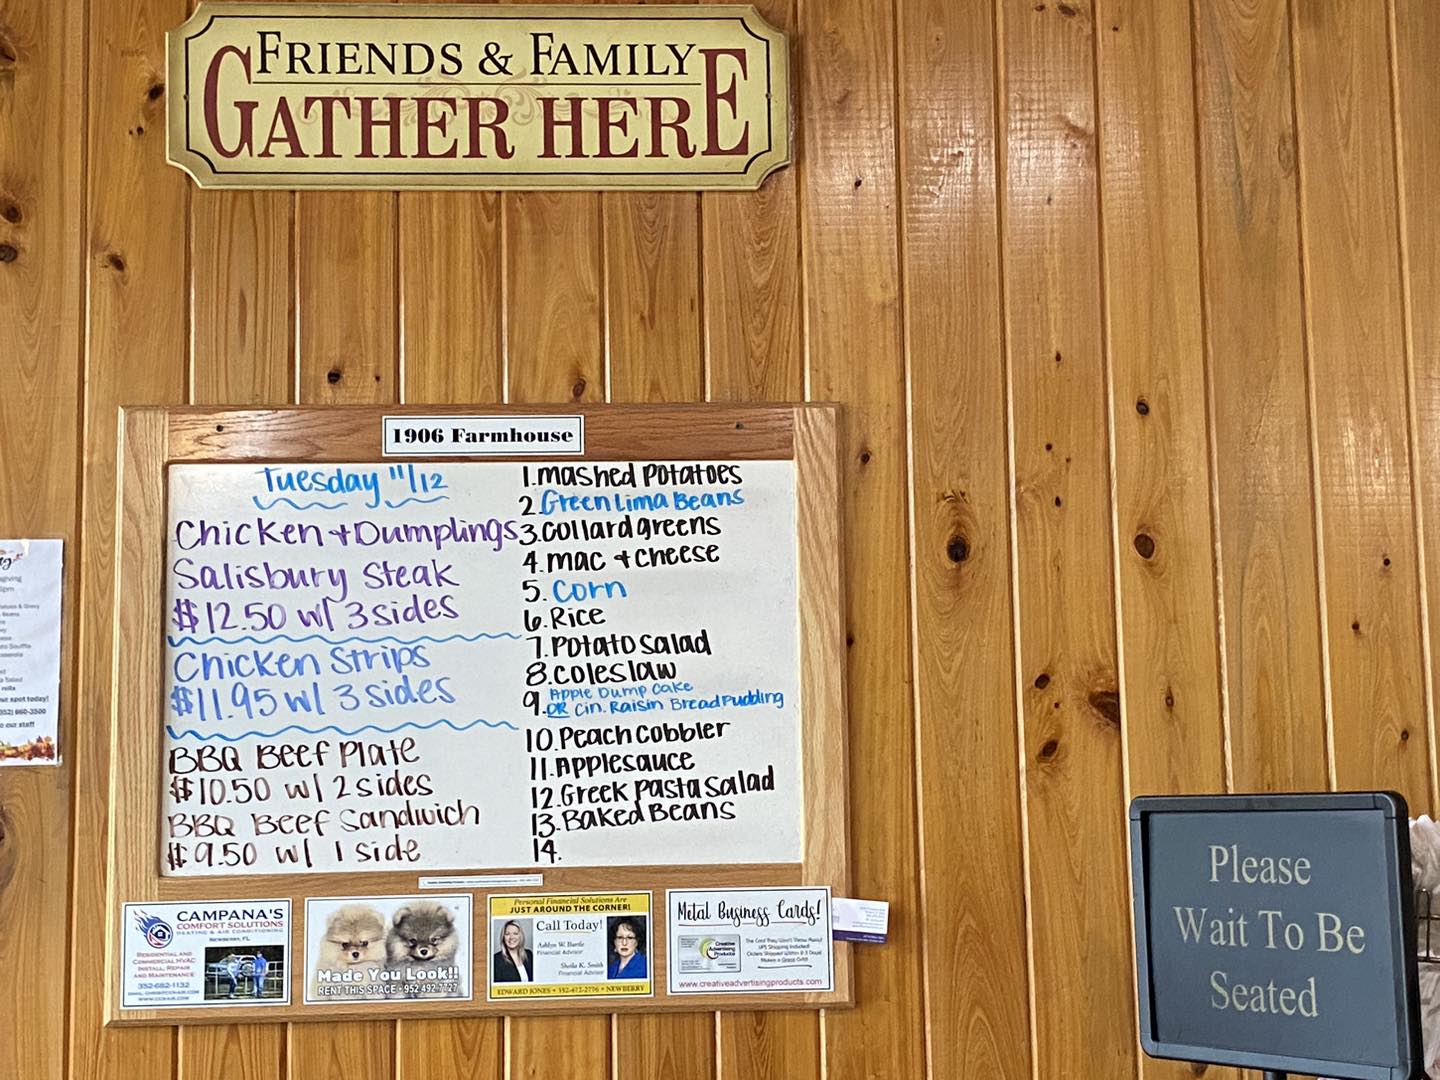 FRIENDS & FAMILY
GATHER HERE
1906 Farmhouse
Tuesday 11/12
Chicken + Dumplings
Salisbury Steak
$12.50 w/ 3 sides
Chicken Strips
$11.95 w/ 3 sides
BBQ Beef Plate
$10.50 w/ 2 sides
BBQ Beef Sandwich
$9.50 w/ 1 side
1. Mashed Potatoes
2. Green Lima Beans
3. Collard greens
4. Mac + Cheese
5. Corn
6. Rice
7. Potato Salad
8. Coleslaw
9. Apple Dump Cake
OR Cin. Raisin Bread Pudding
10. Peach Cobbler
11. Applesauce
12. Greek Pasta Salad
13. Baked Beans
14.
CAMPANA'S
COMFORT SOLUTIONS
HEATING & AIR CONDITIONING
NEWBERRY, FL
RESIDENTIAL AND
COMMERCIAL HVAC
INSTALL, REPAIR
AND MAINTENANCE
352-682-1132
WWW.CCS-AIR.COM
Made You Look!!
RENT THIS SPACE • 952 492 7727
Personal Financial Solutions Are
JUST AROUND THE CORNER!
Call Today!
Ashlyn W. Burtle
Financial Advisor
Sheila K. Smith
Financial Advisor
EDWARD JONES • 352-472-2776 • NEWBERRY
Metal Business Cards!
Creative
Advertising
Products
The Card They Won't Throw Away!
UPS Shipping Included!
Make a Great Gift!
www.creativeadvertisingproducts.com
Please
Wait To Be
Seated